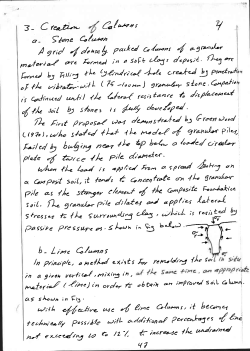 3- Creation of Columns
a. Stone Column
A grid of densely packed columns of a granular
material are formed in a soft clays deposit. They are
formed by filling the cylindrical hole created by penetration
of the vibrator with (75-100mm) granular stone. Compaction
is continued until the lateral resistance to displacement
of the soil by stones is fully developed.
The first proposal was demonstrated by Greenwood
(1970), who stated that the model of granular piles,
failed by bulging near the top below a loaded circular
plate of twice the pile diameter.
When the load is applied from a spread footing on
a compost soil, it tends to concentrate on the granular
pile as the stronger element of the composite foundation
soil. The granular pile dilates and applies lateral
stresses to the surrounding clay, which is resisted by
passive pressure as shown in fig below
b. Lime Columns
In principle, a method exists for remolding the soil in situ
in a given vertical, mixing in, at the same time, an appropriate
material (lime) in order to obtain an improved soil column.
as shown in Fig:
with effective use of lime columns, it becomes
technically possible with additional percentages of lime
not exceeding 10 to 12% to increase the undrained
47